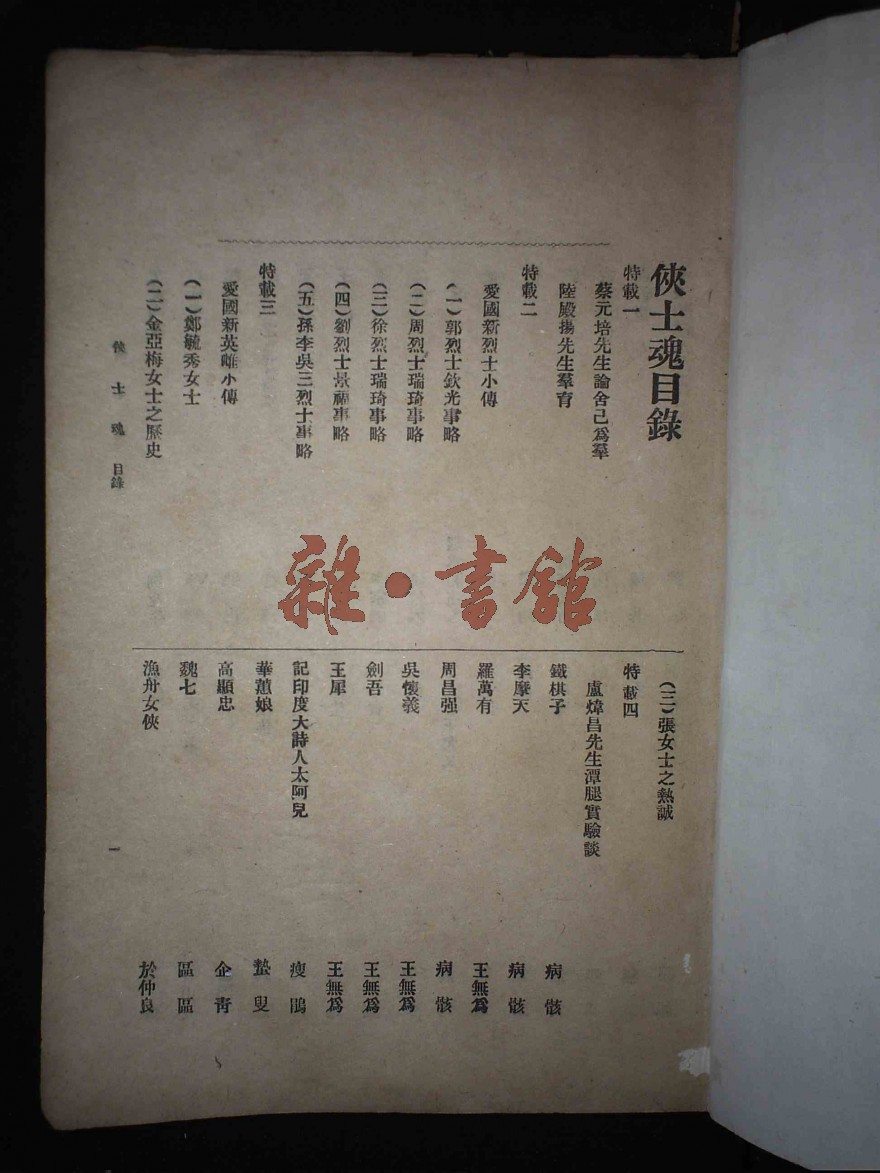 俠士魂目錄
特載一
蔡元培先生論舍己爲羣
陸殿揚先生羣育
特載二
愛國新烈士小傳
(一)郭烈士欽光事略
(二)周烈士瑞琦事略
(三)徐烈士瑞琦事略
(四)劉烈士景福事略
(五)孫李吳三烈士事略
特載三
愛國新英雌小傳
(一)鄭毓秀女士
(二)金亞梅女士之歷史
俠士魂 目錄
雜·書館
(三)張女士之熱誠
特載四
盧煒昌先生潭腿實驗談
鐵棋子 病骸
李摩天 病骸
羅萬有 王無爲
周昌强 病骸
吳懷義 王無爲
劍吾 王無爲
王犀 王無爲
記印度大詩人太阿兒 瘦鵑
華蕙娘 蟄叟
高顯忠 企靑
魏七 區區
漁舟女俠 於仲良
一